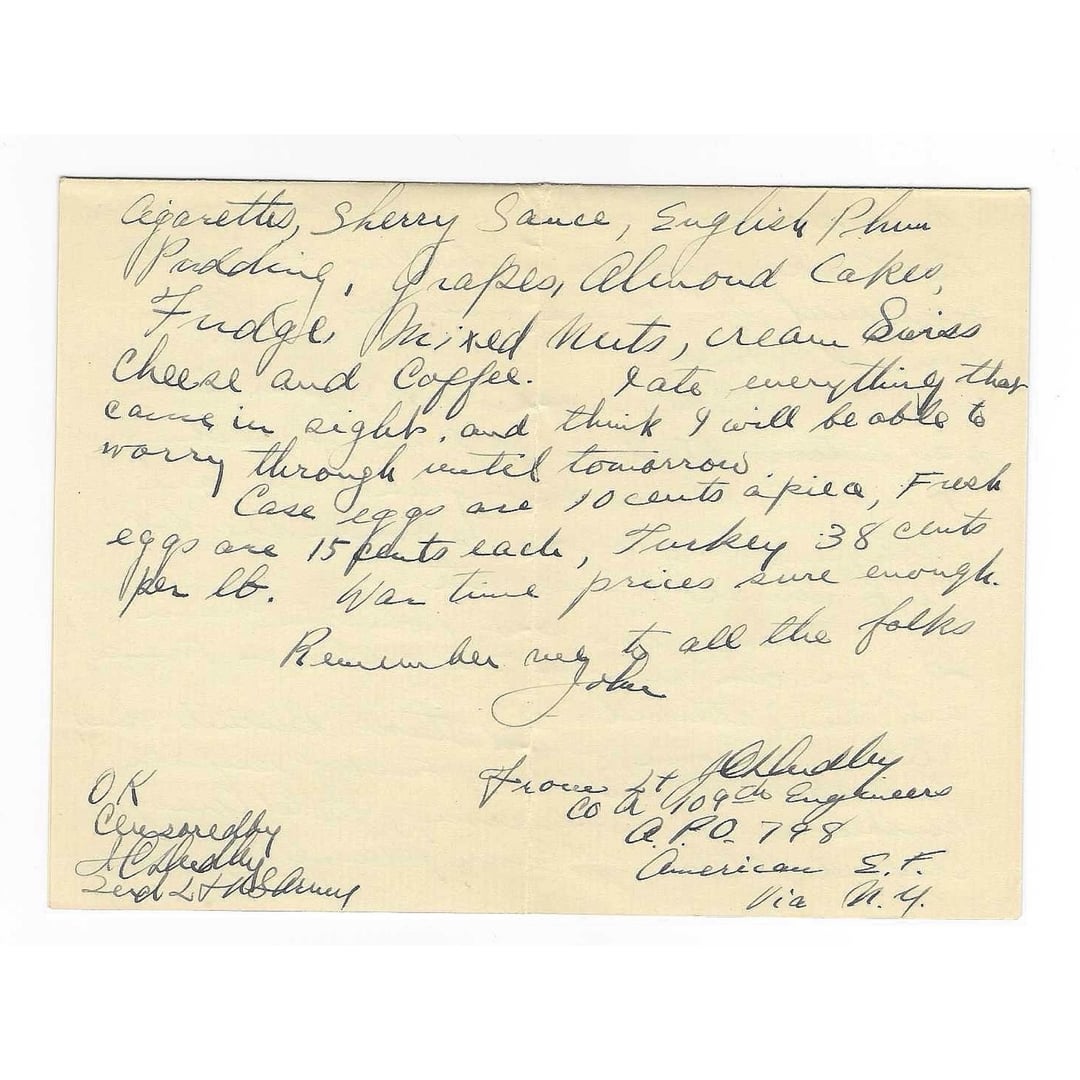 Cigarettes, Sherry Sauce, English Plum
Pudding, Grapes, Almond Cakes,
Fudge, Mixed Nuts, cream Swiss
Cheese and Coffee. I ate everything that
came in sight, and think I will be able to
worry through until tomorrow
Case eggs are 10 cents apiece, Fresh
eggs are 15 cents each, Turkey 38 cents
per lb. War time prices sure enough.
Remember me to all the folks
John
From Lt J C Dudley
Co A 109th Engineers
A.P.O. 748
American E. F.
Via N. Y.
OK
Censored by
J C Dudley
2nd Lt US Army